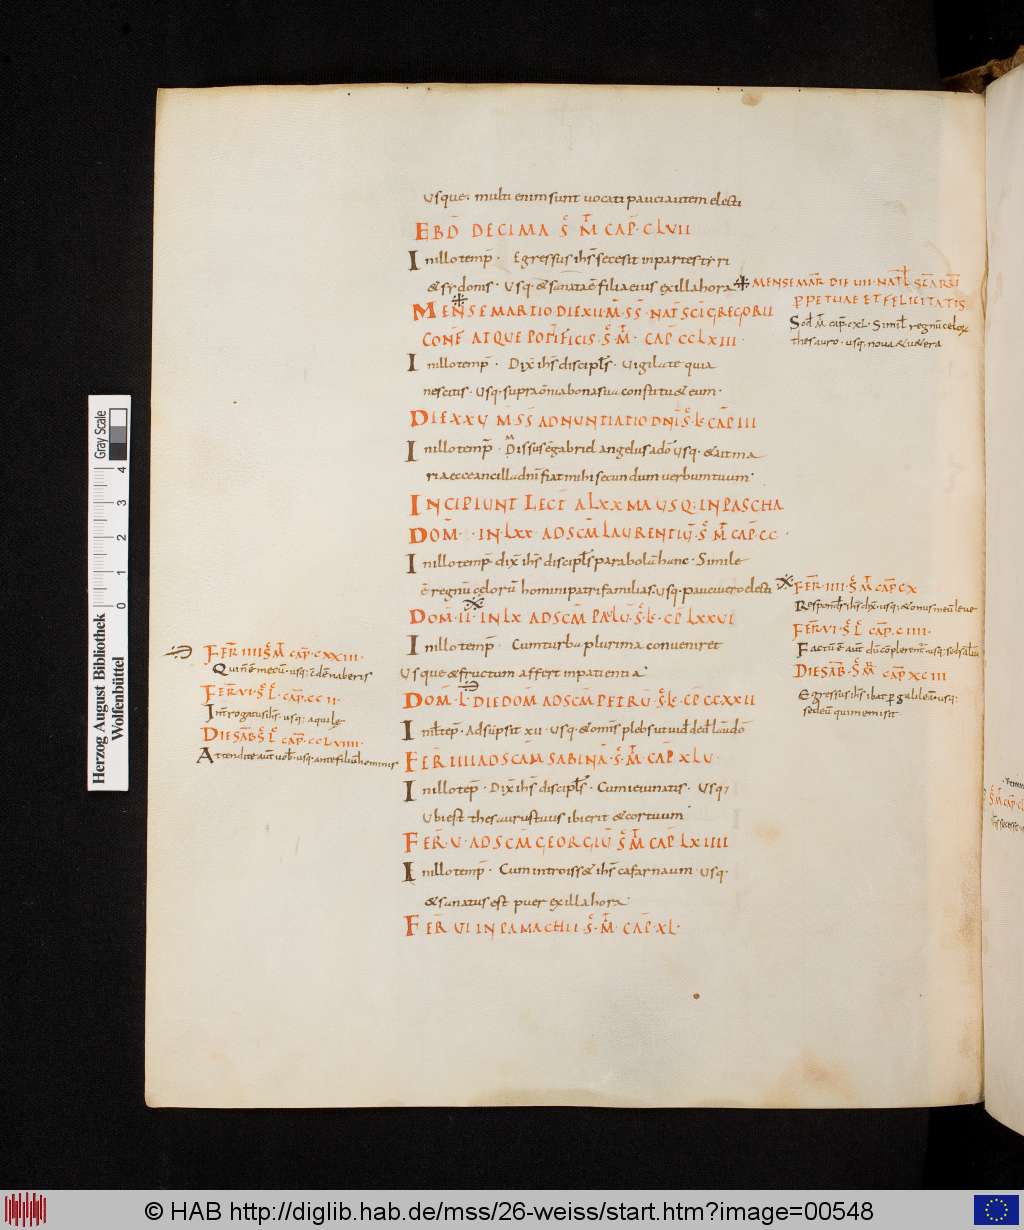 usque· multi enim sunt uocati pauci autem electi
EBD̄ DECIMA S̄ M̄ CAP̄· CLVII
In illo temp̄· Egressus ihs̄ secesit in partes tyri
& sydonis· Usq· & sanata ē filia eius ex illa hora
MENSE MARTIO DIE XII M̄·S̄S̄· NAT̄ SC̄I GREGORII
CONF̄ ATQUE PONTIFICIS· S̄· M̄· CAP̄ CCLXIII·
In illo temp̄· Dix̄ ihs̄ discipl̄s· Uigilate quia
nescitis· Usq· supra om̄ia bona sua constitu& eum·
DIE XXV M̄·S̄S̄ ADNUNTIATIO DN̄I S̄·L̄· CAP̄ III
In illo temp̄· Missus ē gabriel angelus a dō Usq· & ait ma
ria ecce ancilla dn̄i fiat mihi secundum uerbum tuum·
INCIPIUNT LECT̄ A LXXMA USQ: IN PASCHA
DOM̄· IN LXX· AD SC̄M LAURENTIŪ· S̄ M̄ CAP̄ CC·
In illo temp̄ dix̄ ihs̄ discipl̄s parabolā hanc· Simile
ē regnū celorū homini patri familias· Usq· pauci uero electi
DOM̄· II· IN LX AD SC̄M PAULŪ· S̄·L̄· CP̄ LXXVI
In illo temp̄· Cum turba plurima conueniret
Usque & fructum affert in patientia
DOM̄· L· DIE DOM̄ AD SC̄M PETRŪ· S̄·L̄· CP̄ CCXXII
In il̄l tep̄· Adsūpsit XII· Usq· & omīs plebs ut uid̄ ded̄ laudē dō
FER̄ IIII AD SC̄AM SABINĀ· S̄· M̄· CAP̄ XLV·
In illo tep̄· Dix̄ ihs̄ discipl̄s· Cum ieiunatis· Usq·
Ubi est thesaurus tuus ibi erit & cor tuum
FER̄·V· AD SC̄M GEORGIŪ S̄ M̄ CAP̄ LXIIII
In illo temp̄· Cum introiss& ihs̄ cafarnaum Usq·
& sanatus est puer ex illa hora
FER̄ VI IN PAMACHII S̄· M̄· CAP̄ XL·
MENSE MAR̄ DIE IIII· NATL̄ SC̄ARŪ
PPETUAE ET FELICITATIS
Sed̄ M̄ cap̄ CXL· Simil̄ regnū celox
thesauro· usq· noua & uetera
FER̄· IIII· S̄ M̄ CAP̄ CX
Respond̄ ihs̄ dix̄· usq· & onus meū leue
FER̄ VI· S̄ L̄ CAP̄· C IIII·
Factū ē aut̄ dū cōplerent̄· usq·
DIE SAB̄· S̄ M̄ CAP̄ XCIII
Egressus ihs̄ ibat p galileā· usq·
sed eū qui me misit
FER̄ IIII S̄ M̄ CAP̄· CXXIII·
Qui nō ē mecū· usq·
FER̄ VI· S̄ L̄· CAP̄· CC II·
Int̄rogatus ihs̄· usq· aquile
DIE SAB̄ S̄ L̄ CAP̄· CCLVIIII·
Attendite aut̄ uob̄· usq· ante filiū hominis
Herzog August Bibliothek
Wolfenbüttel
0 1 2 3 4
Gray Scale
© HAB http://diglib.hab.de/mss/26-weiss/start.htm?image=00548